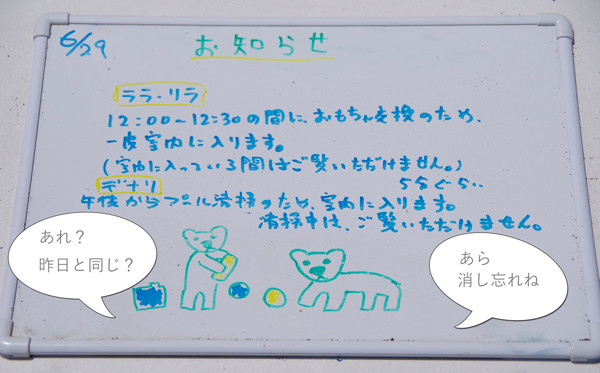 6/29
お知らせ
ララ・リラ
12:00〜12:30の間に、おもちゃ交換のため、
一度室内に入ります。
(室内に入っている間はご覧いただけません。)
デナリ
5分ぐらい..
午後からプール清掃のため、室内に入ります。
清掃中は、ご覧いただけません。
あれ?
昨日と同じ?
あら
消し忘れね